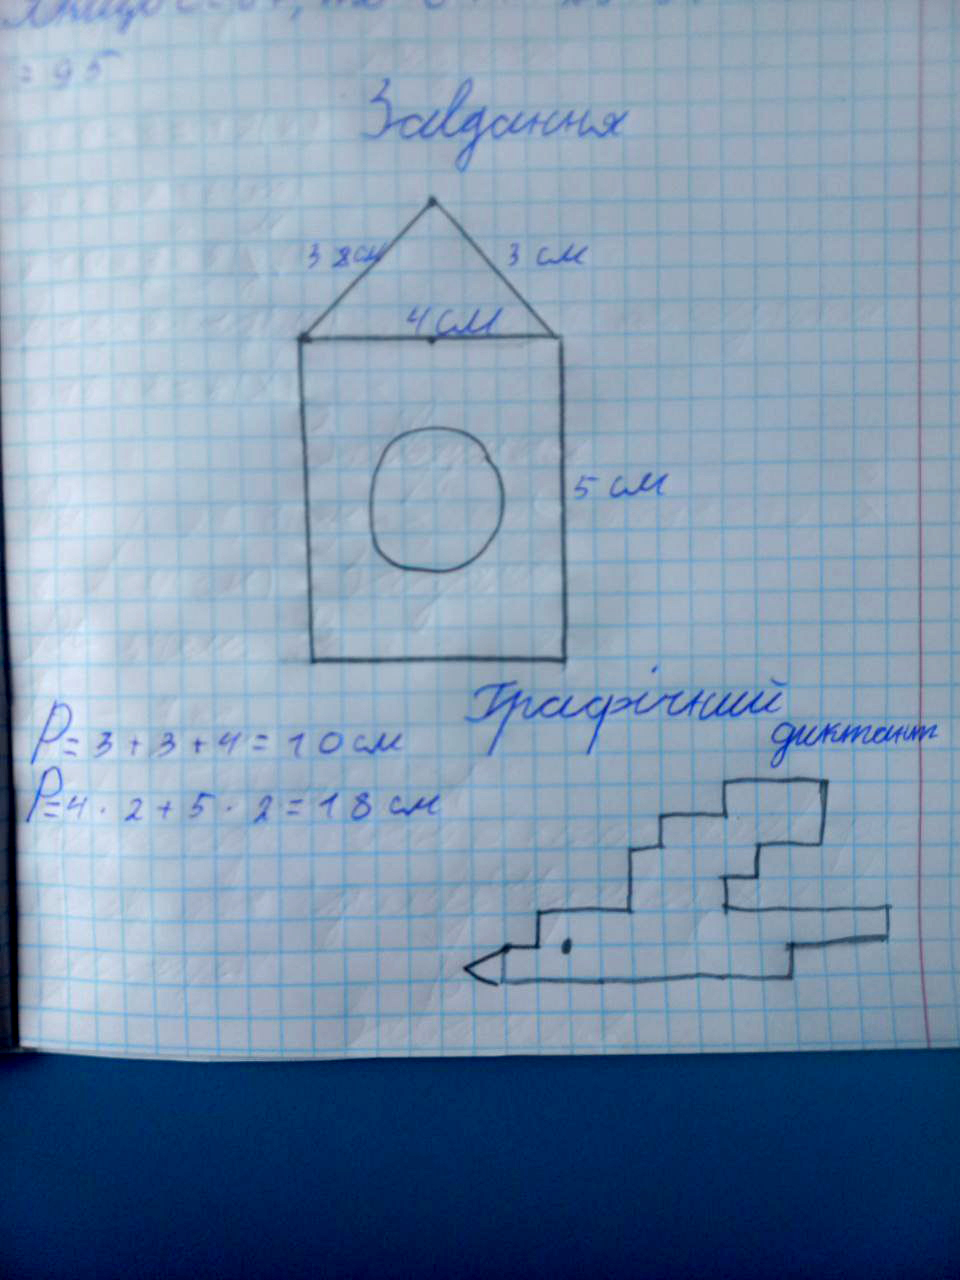 = 95
Завдання
3 см 3 см
4 см
5 см
Графічний
диктант
P= 3 + 3 + 4 = 10 см
P=4 · 2 + 5 · 2 = 18 см